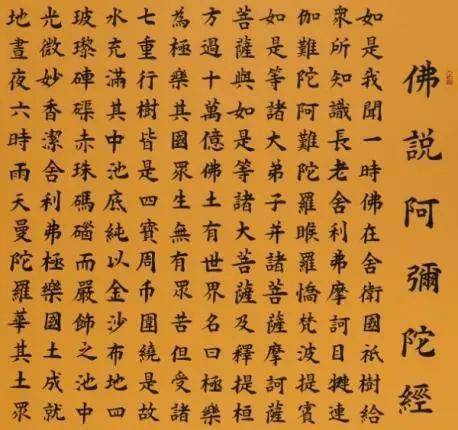 佛說阿彌陀經
如是我聞一時佛在舍衛國祇樹給
眾所知識長老舍利弗摩訶目犍連
伽難陀阿難陀羅睺羅憍梵波提賓
如是等諸大弟子并諸菩薩摩訶薩
菩薩與如是等諸大菩薩及釋提桓
方過十萬億佛土有世界名曰極樂
為極樂其國眾生無有眾苦但受諸
七重行樹皆是四寶周帀圍繞是故
水充滿其中池底純以金沙布地四
玻瓈硨磲赤珠碼碯而嚴飾之池中
光微妙香潔舍利弗極樂國土成就
地晝夜六時雨天曼陀羅華其土眾